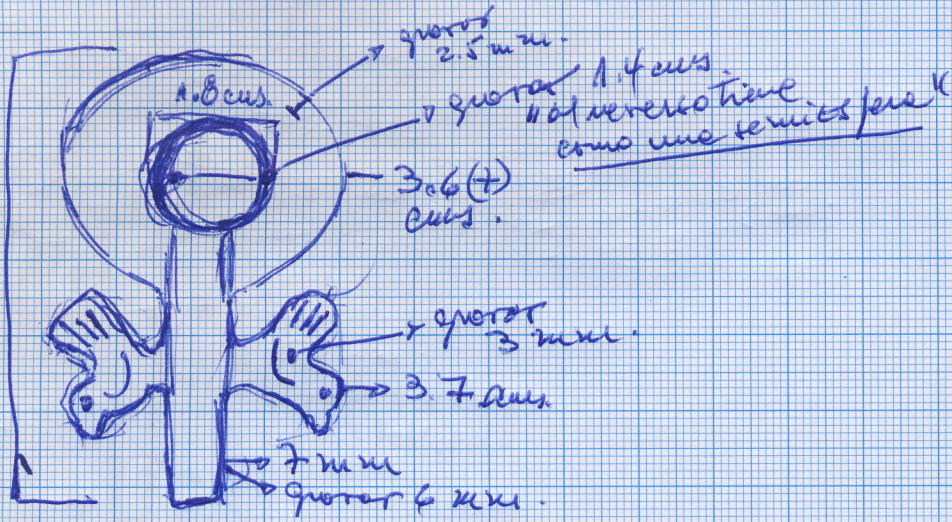 grosor
2.5 mm.
1.8 cms.
grosor 1.4 cms.
"al reverso tiene
como una semiesfera"
3.6 (+)
cms.
grosor
3 mm.
3.7 cms.
7 mm
grosor 6 mm.